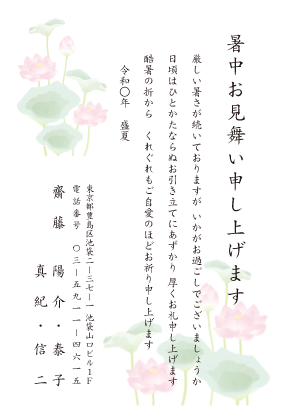 暑中お見舞い申し上げます
厳しい暑さが続いておりますが いかがお過ごしでございましょうか
日頃はひとかたならぬお引き立てにあずかり 厚くお礼申し上げます
酷暑の折から くれぐれもご自愛のほどお祈り申し上げます
令和〇年 盛夏
東京都豊島区池袋二ー三七ー一 池袋山口ビル1F
電話番号 〇三ー五九一一ー四六一五
齋藤 陽介・泰子
真紀・信二